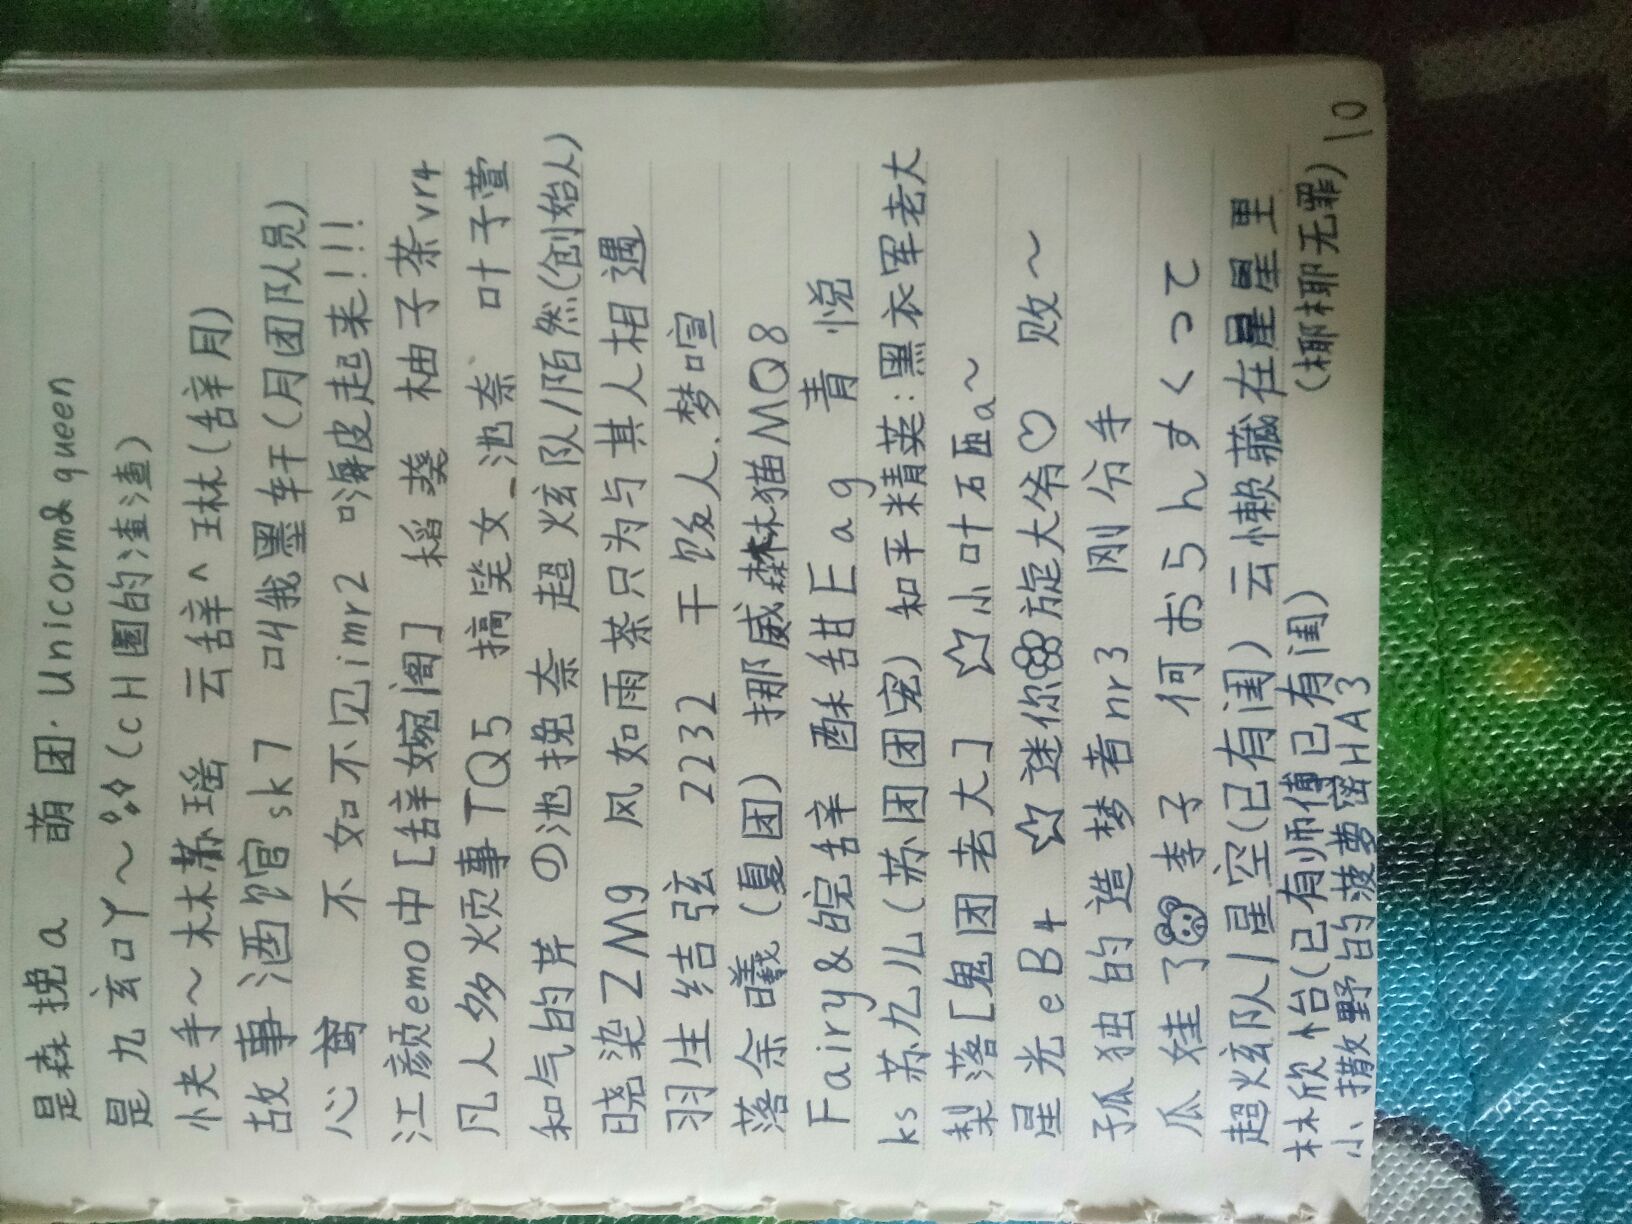 是森挽a 萌团·Unicorm&queen
是九玄口丫～(cH圈的渣渣)
快手～林蔴瑶 云辞^琳(辞月)
故事酒馆sk7 叫我墨轩(月团队员)
心鸢 不如不见imr2 嗨皮起来!!!
江颜emo中[辞婉阁] 稻葵 柚子茶vr4
凡人多烦事TQ5 搞笑女_池奈、叶子萱
和气的芹 の池挽奈 超炫队/陌然(创始人)
晓染ZM9 风如雨茶只为与其人相遇
羽生结弦 2232 干饭人.梦喧
落余曦(夏团) 挪威森林猫MQ8
Fairy&皖辞 酥甜Eag 青悦
ks苏九儿(苏团团宠) 和平精英:黑衣军老大
梨落[鬼团老大] ☆小叶石a～
星光eB4 ☆迷你旋大爷♡ 败～
孤独的造梦者nr3 刚分手
瓜娃了李子 何おらんすくって
超炫队/星空(已有闺) 云懒藏在星星里
林欣怡(已有师傅已有闺) (椰椰无罪)
小撒野的菠萝蜜HA3
10